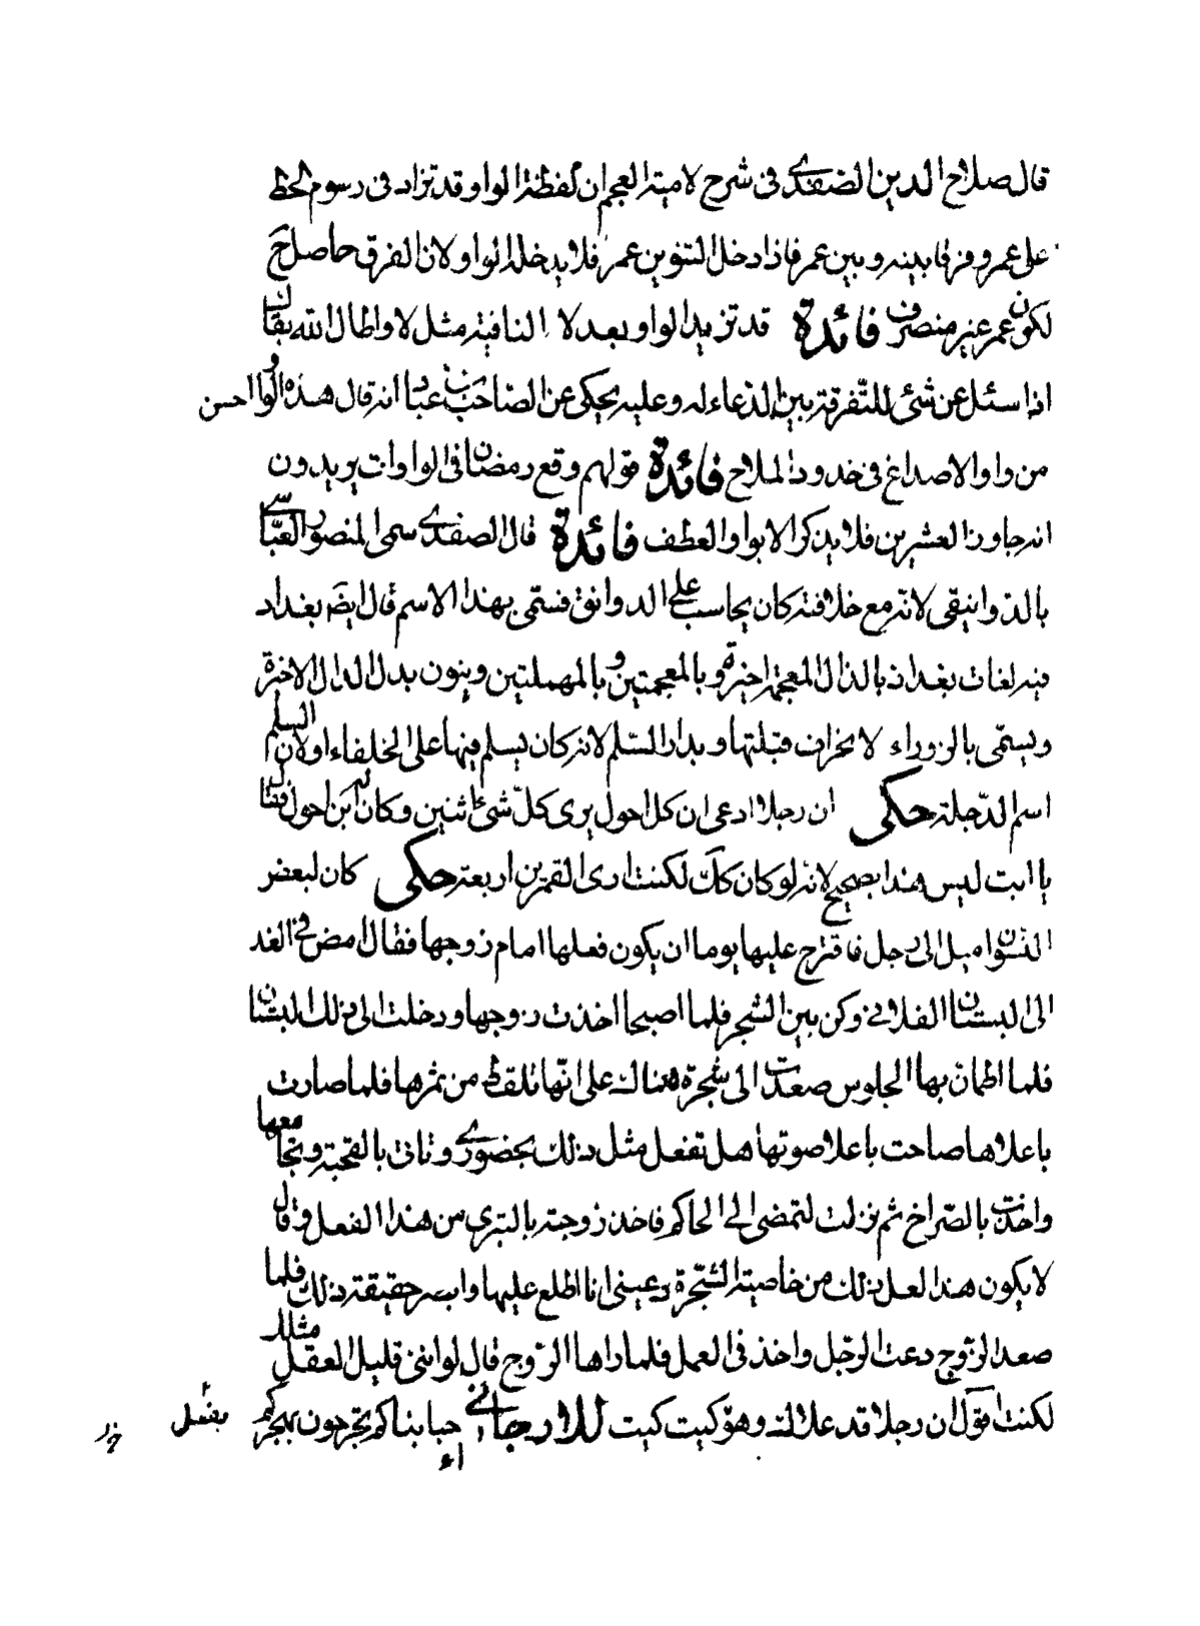 قال صلاح الدين الصفدي في شرح لامية العجم ان لفظة الواو قد تزاد في رسوم الخط
على عمرو فرقا بينه وبين عمر فاذا دخل التنوين عمر فلا يدخله الواو لان الفرق حاصل ح
لكون عمر غير منصرف فائدة قد تزيد الواو بعد لا النافية مثل لا واطال الله بقاك
اذا سئل عن شئ للتفرقة بين الدعاء له وعليه يحكى عن الصاحب بن عباد انه قال هذه الواو احسن
من واو الاصداغ في خدود الملاح فائدة قولهم وقع رمضان في الواوات يريدون
انه جاوز العشرين فلا يذكر الا بواو العطف فائدة قال الصفدي سمى المنصور العباسي
بالدوانيقى لانه مع خلافته كان يحاسب على الدوانق فسمى بهذا الاسم قال ايضا بغداد
فيه لغات بغداذ بالذال المعجمة اخيرة وبالمعجمتين وبالمهملتين وبنون بدل الدال الاخيرة
ويسمى بالزوراء لانحراف قبلتها وبدار السلم لانه كان يسلم فيها على الخلفاء اولان السلم
اسم الدجلة حكى ان رجلا ادعى ان كل احول يرى كل شئ اثنين وكان له ابن احول فقال
يا ابت ليس هذا بصحيح لانه لو كان كك لكنت ارى القمرين اربعة حكى كان لبعض
النسوان ميل الى رجل فاقترح عليها يوما ان يكون فعلها امام زوجها فقال امض في الغد
الى البستان الفلاني وكن بين الشجر فلما اصبحا اخذت زوجها ودخلت الى ذلك البستان
فلما اطمان بها الجلوس صعدت الى شجرة هناك على انها تلقط من ثمرها فلما صارت
باعلاها صاحت باعلا صوتها هل تفعل مثل ذلك بحضوري وتاتى بالقحبة وتجامعها
واخذت بالصراخ ثم نزلت لتمضى الى الحاكم فاخذ زوجته بالتبري من هذا الفعل وقال
لا يكون هذا لعل ذلك من خاصية الشجرة دعيني انا اطلع عليها وابصر حقيقة ذلك فلما
صعد الزوج دعت الرجل واخذ في العمل فلما راها الزوج قال لو انني قليل العقل مثلك
لكنت اقول ان رجلا قد علاك وهو كيت كيت للارجاني احبابنا كم تجرحون بهجركم